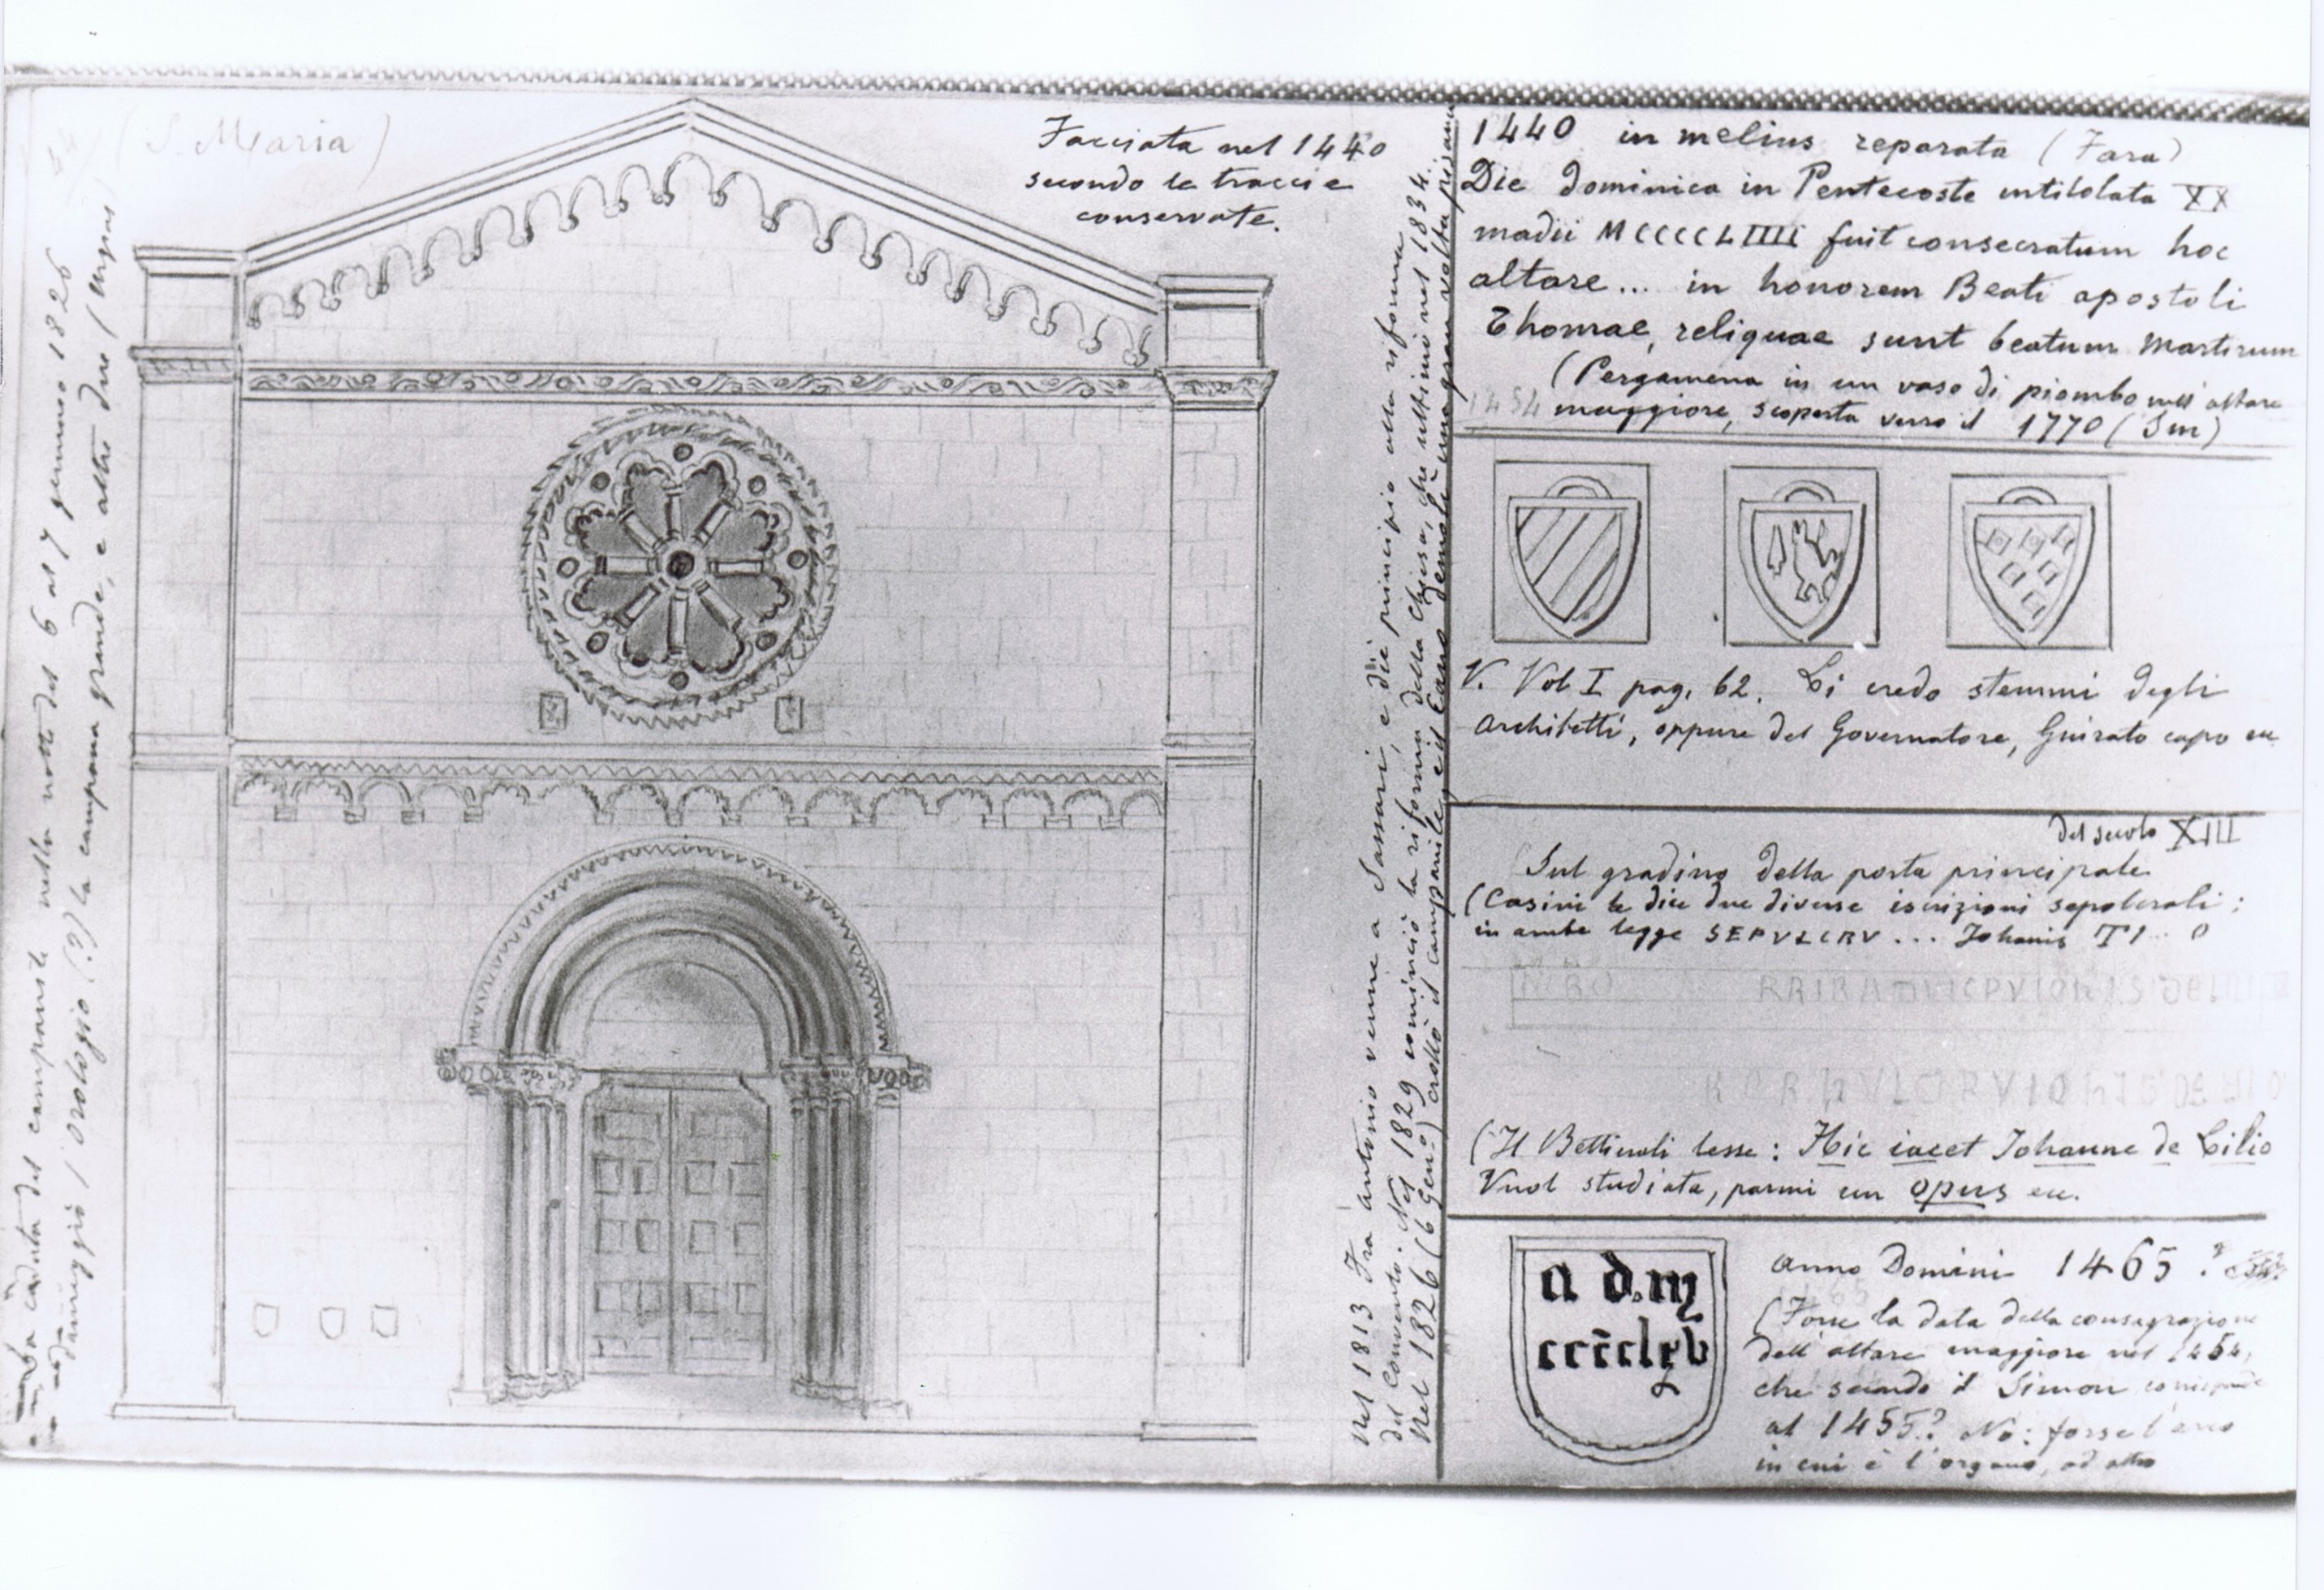 (S. Maria)
Facciata nel 1440
secondo le traccie
conservate.
caduta del campanile nella notte del 6 al 7 gennaio 1826
danneggiò l'orologio (?) la campana grande, e altre due
Nel 1813 Fra Antonio venne a Sassari, e diè principio alla riforma
del Convento. Nel 1829 cominciò la riforma della Chiesa, che ultimò nel 1834.
Nel 1826 (6 Gen.o) crollò il campanile, e il Cano demolì una gran volta pisana
1440 in melius reparata (Fara)
Die dominica in Pentecoste intitolata XX
madii MCCCCLIIII fuit consecratum hoc
altare... in honorem Beati apostoli
Thomae, reliquae sunt beatum Martirum
(Pergamena in un vaso di piombo nell'altare
1454 maggiore, scoperta verso il 1770 (Sim)
V. Vol I pag. 62. Li credo stemmi degli
Architetti, oppure del Governatore, Giurato capo ec
del secolo XIII
Sul gradino della porta principale
(Casini le dice due diverse iscrizioni sepolcrali:
in ambe legge SEPVLCRV... Johanis TI... O
(Il Bettinali lesse: Hic iacet Johanne de Lilio
Vuol studiata, parmi un opus ec.
a d. m
cccclxv
Anno Domini 1465?
(Forse la data della consagrazione
dell'altare maggiore nel 1454,
che secondo il Simon corrisponde
al 1455? No: forse l'arco
in cui è l'organo, od altro